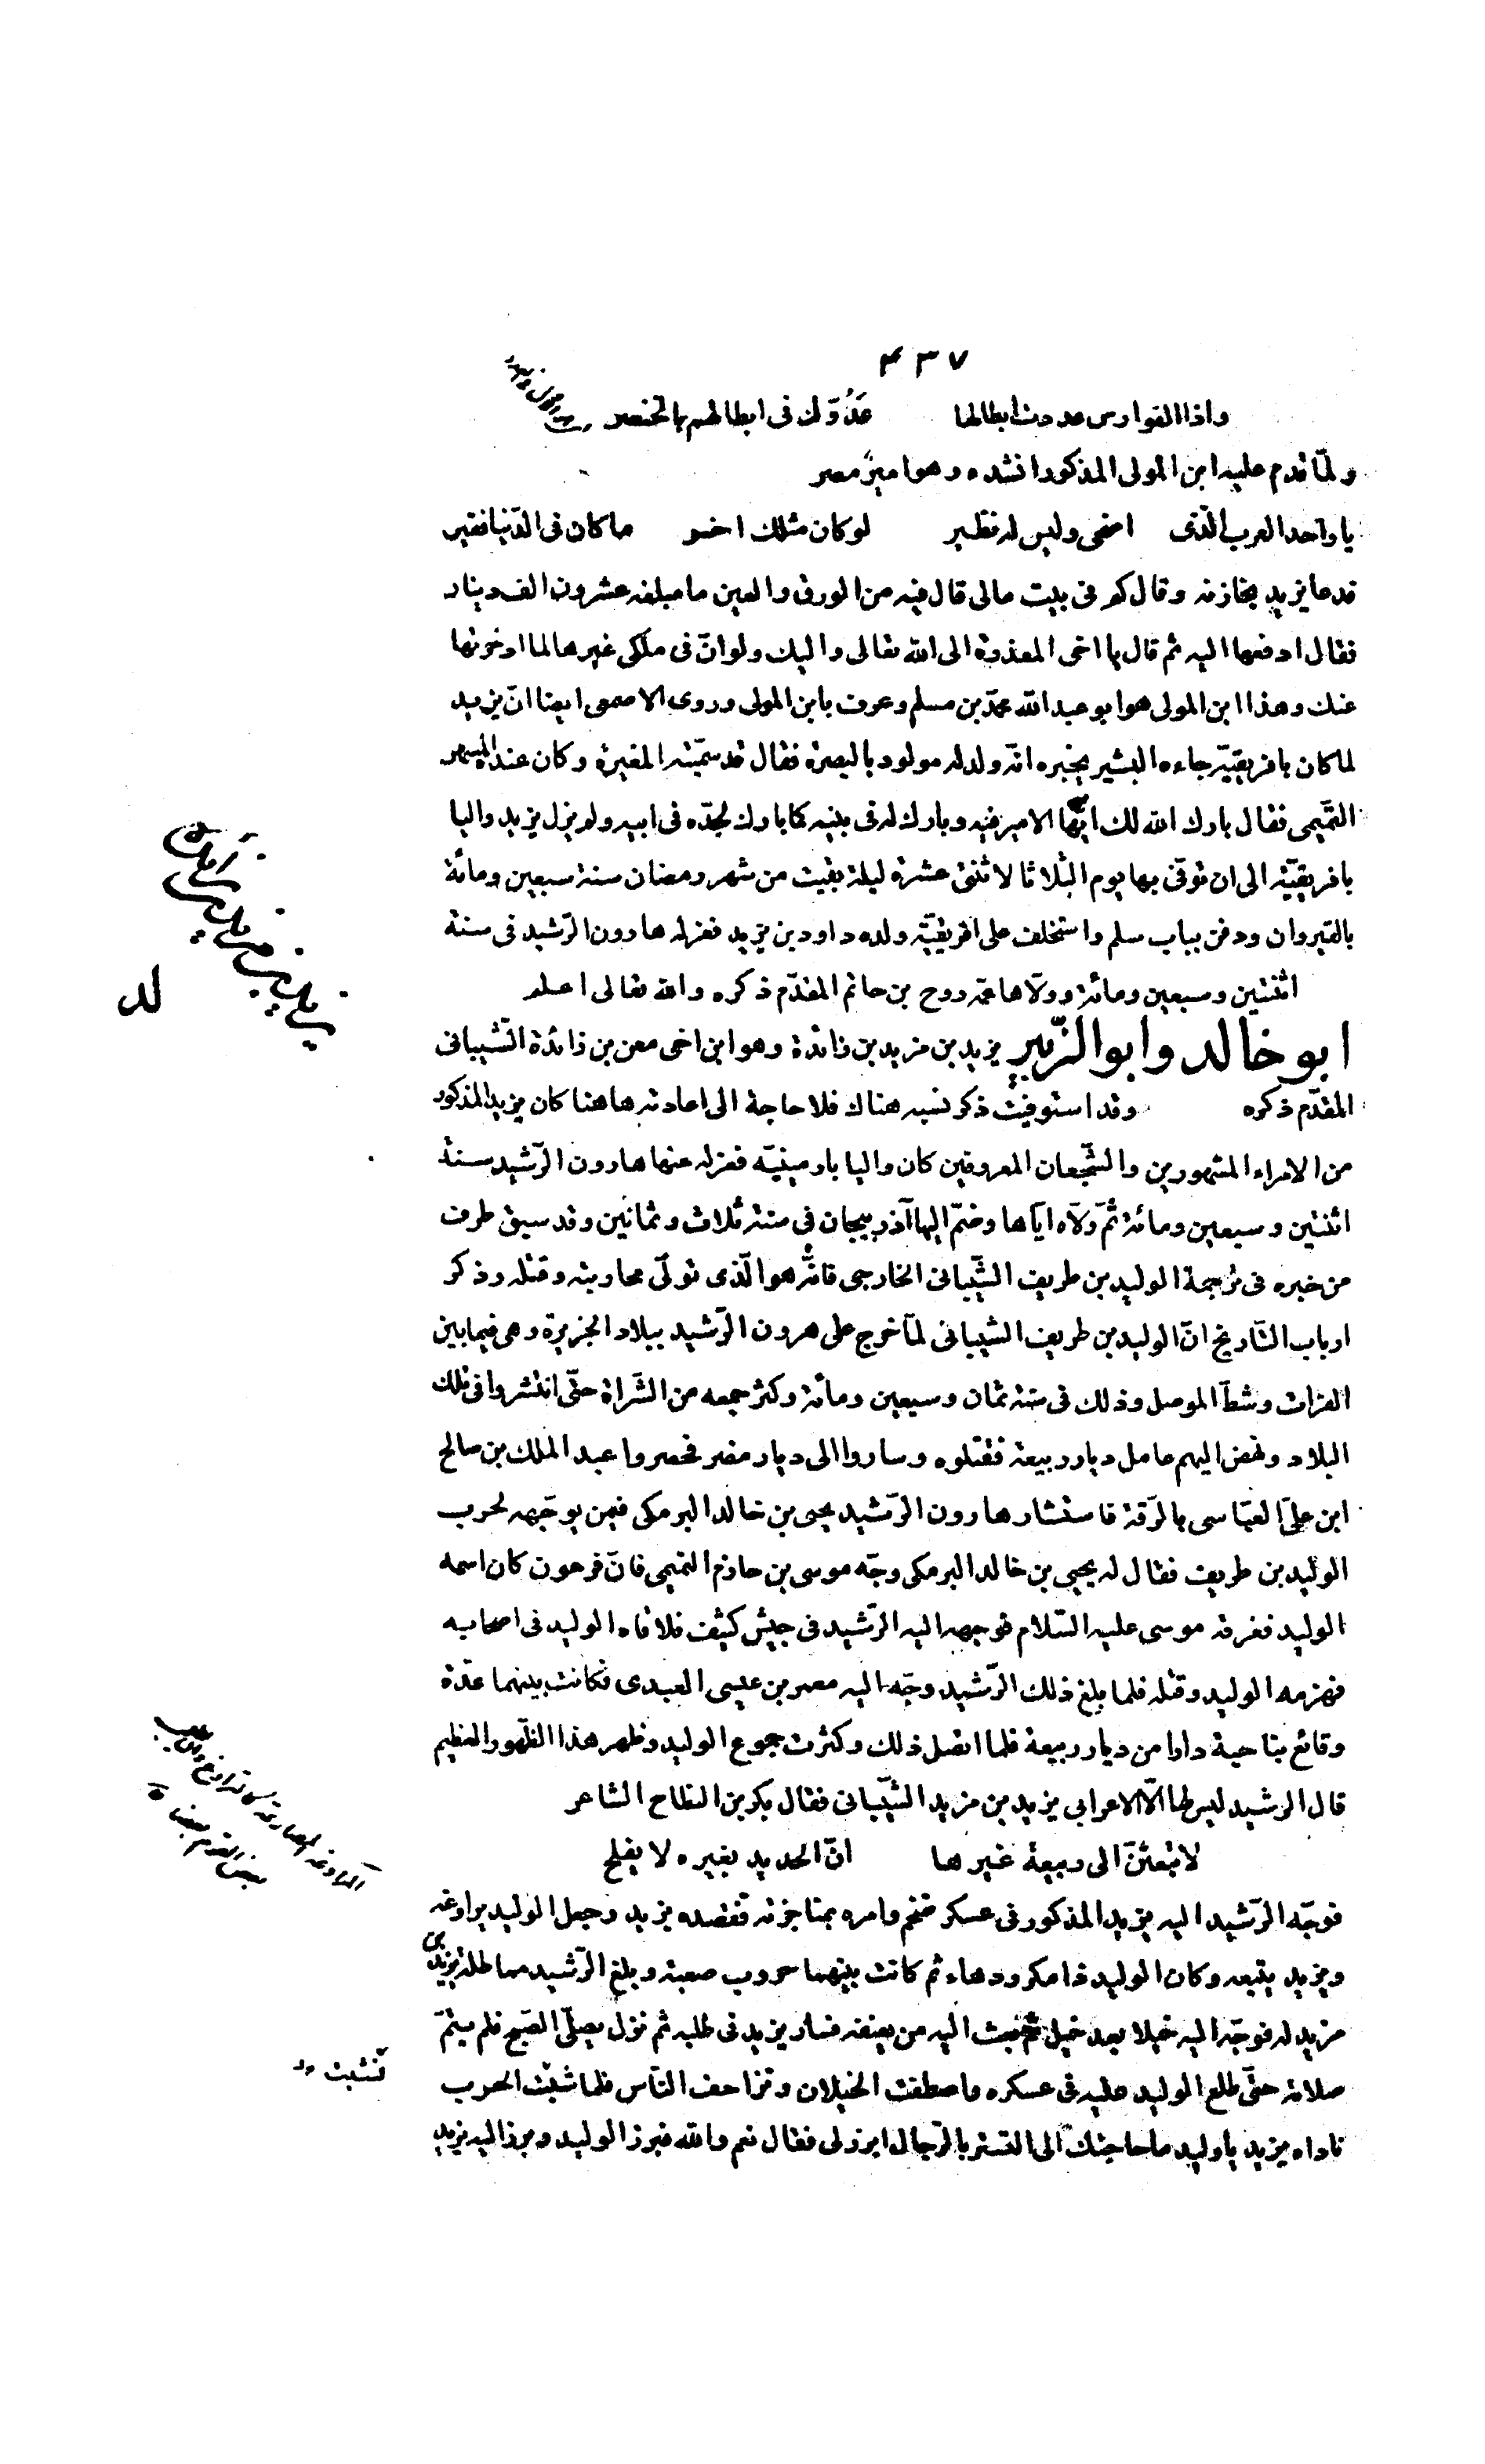 ٤٣٧
واذا الفوارس عددت ابطالها عدّوك فى ابطالهم بالخنصر
ولمّا قدم عليه ابن المولى المذكور انشده وهو امير مصر
يا واحد العرب الّذى اضحى وليس له نظير لو كان مثلك اخر ما كان فى الدّنيا فقير
فدعا يزيد بخازنه وقال كم فى بيت مالى قال فيه من الورق والعين ما مبلغه عشرون الف دينار
فقال ادفعها اليه ثم قال يا اخى المعذرة الى الله تعالى واليك ولو انّ فى ملكى غيرها لما ادخرتها
عنك وهذا ابن المولى هو ابو عبد الله محمّد بن مسلم وعرف بابن المولى وروى الاصمعى ايضا انّ يزيد
لما كان بافريقيّة جاءه البشير يخبره انّه ولد له مولود بالبصرة فقال قد سمّيته المغيرة وكان عنده المسهر
التّميمى فقال بارك الله لك ايّها الامير فيه وبارك له فى بنيه كما بارك لجدّه فى ابيه ولم يزل يزيد واليا
بافريقيّة الى ان توفّى بها يوم الثلاثا لاثنتى عشرة ليلة بقيت من شهر رمضان سنة سبعين ومائة
بالقيروان ودفن بباب سلم واستخلف على افريقيّة ولده داود بن يزيد فعزله هارون الرّشيد فى سنة
اثنتين وسبعين ومائة وولّاها عمّه روح بن حاتم المقدّم ذكره والله تعالى اعلم
ابو خالد وابو الزّبير يزيد بن مزيد بن زائدة وهو ابن اخى معن بن زائدة الشّيبانى
المقدّم ذكره وقد استوفيت ذكر نسبه هناك فلا حاجة الى اعادته هاهنا كان يزيد المذكور
من الامراء المشهورين والشّجعان المعروفين كان واليا بارمينيّه فعزله عنها هارون الرّشيد سنة
اثنتين وسبعين ومائة ثمّ ولّاه ايّاها وضمّ اليها آذربيجان فى سنة ثلاث وثمانين وقد سبق طرف
من خبره فى ترجمة الوليد بن طريف الشّيبانى الخارجى فانّه هو الّذى تولّى محاربته وقتله وذكر
ارباب التّاريخ انّ الوليد بن طريف الشيبانى لمّا خرج على هرون الرّشيد ببلاد الجزيرة وهى فيما بين
الفرات وشطّ الموصل وذلك فى سنة ثمان وسبعين ومائة وكثر جمعه من الشّراة حتّى انتشروا فى تلك
البلاد ونهض اليهم عامل ديار ربيعة فقتلوه وساروا الى ديار مضر فحصروا عبد الملك بن صالح
ابن علىّ العبّاسى بالرّقة فاستشار هارون الرّشيد يحيى بن خالد البرمكى فيمن يوجّهه لحرب
الوليد بن طريف فقال له يحيى بن خالد البرمكى وجّه موسى بن حازم التميمى فانّ فرعون كان اسمه
الوليد فغرقه موسى عليه السّلام فوجهه اليه الرّشيد فى جيش كثيف فلاقاه الوليد فى اصحابه
فهزمه الوليد وقتله فلما بلغ ذلك الرّشيد وجّه اليه معمر بن عيسى العبدى فكانت بينهما عدّة
وقائع بناحية دارا من ديار ربيعة فلما اتصل ذلك وكثرت جموع الوليد وظهر هذا الظّهور العظيم
قال الرشيد ليس لها الّا الاعرابى يزيد بن مزيد الشّيبانى فقال بكر بن النطاح الشاعر
لا تبعثنّ الى ربيعة غيرها انّ الحديد بغيره لا يفلح
فوجّه الرّشيد اليه يزيد المذكور فى عسكر ضخم وامره بمناجزته فقصده يزيد وجعل الوليد يراوغه
ويزيد يتبعه وكان الوليد ذا مكر ودهاء ثم كانت بينهما حروب صعبة وبلغ الرّشيد مماطلة يزيد بن
مزيد له فوجّه اليه خيلا بعد خيل ثم بعث اليه من يعنفه فسار يزيد فى طلبه ثم نزل يصلّى الصّبح فلم يتمّ
صلاته حتّى طلع الوليد عليه فى عسكره واصطفت الخيلان وتزاحف النّاس فلما شبّت الحرب
ناداه يزيد يا وليد ما حاجتك الى التستر بالرّجال ابرز لى فقال نعم والله فبرز الوليد وبرز اليه يزيد
لد
نشبت